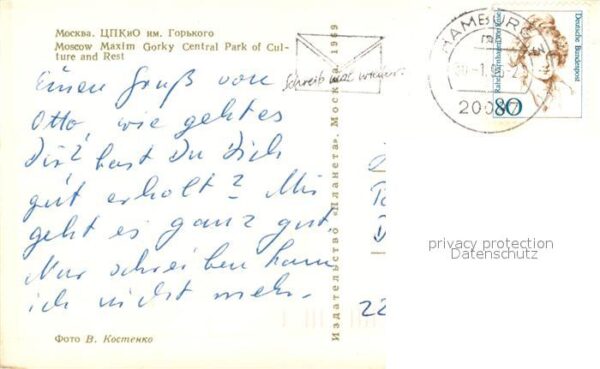 Москва. ЦПКиО им. Горького
Moscow Maxim Gorky Central Park of Cul-
ture and Rest
Einen Gruß von
Otto, wie geht es
Dir? hast Du Dich
gut erholt? Mir
geht es ganz gut
Nur schreiben kann
ich nicht mehr.
Фото В. Костенко
Издательство «Планета». Москва. 1969
Schreib mal wieder.
HAMBURG
200
Deutsche Bundespost
Rahel Varnhagen von Ense
80
privacy protection
Datenschutz
22